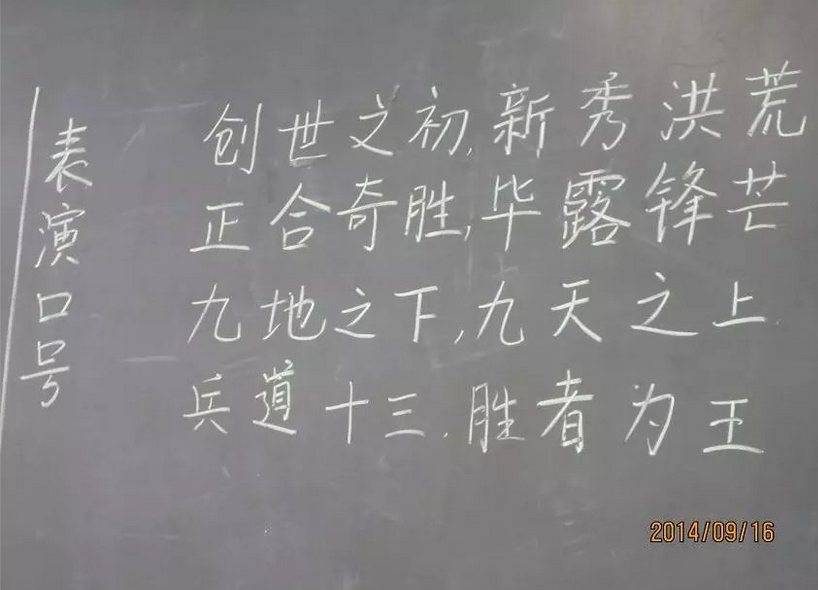 表演口号
创世之初,新秀洪荒
正合奇胜,毕露锋芒
九地之下,九天之上.
兵道十三.胜者为王
2014/09/16